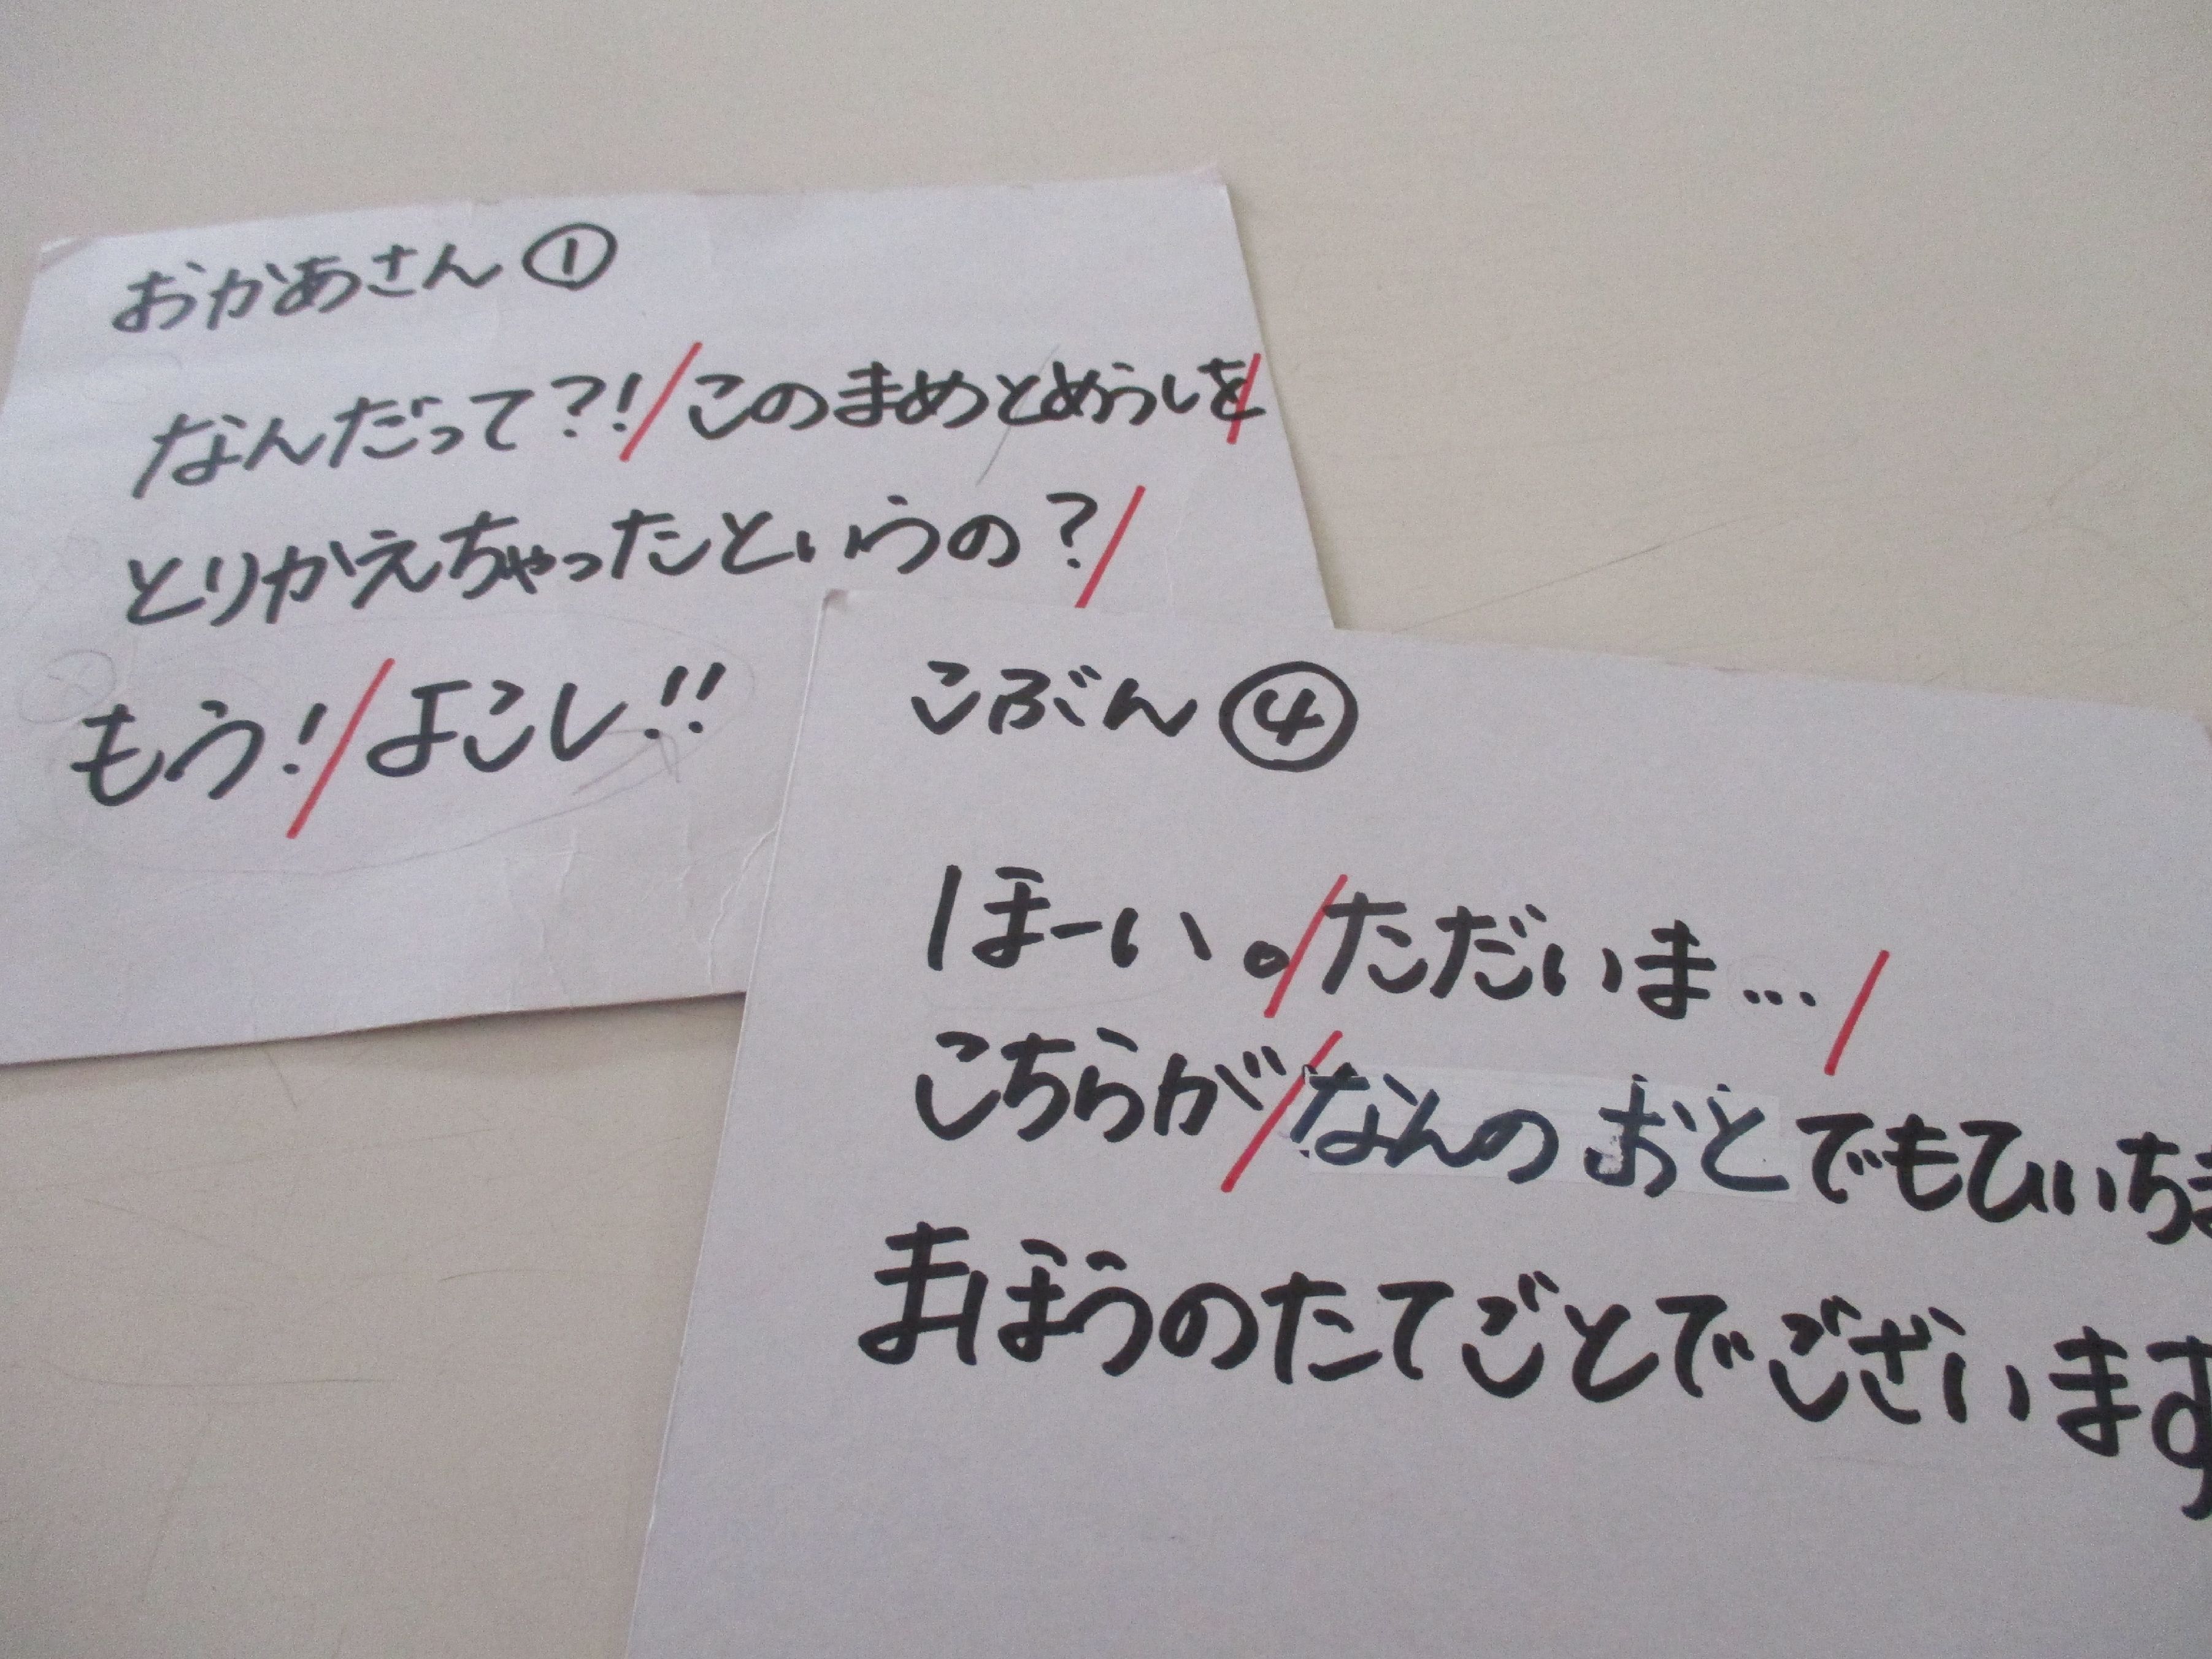 おかあさん①
なんだって?!/このまめとめうしを/
とりかえちゃったというの?/
もう!/よこし!!
こぶん④
ほーい。/ただいま…/
こちらが/なんのおとでもひいちま
まほうのたてごとでございます